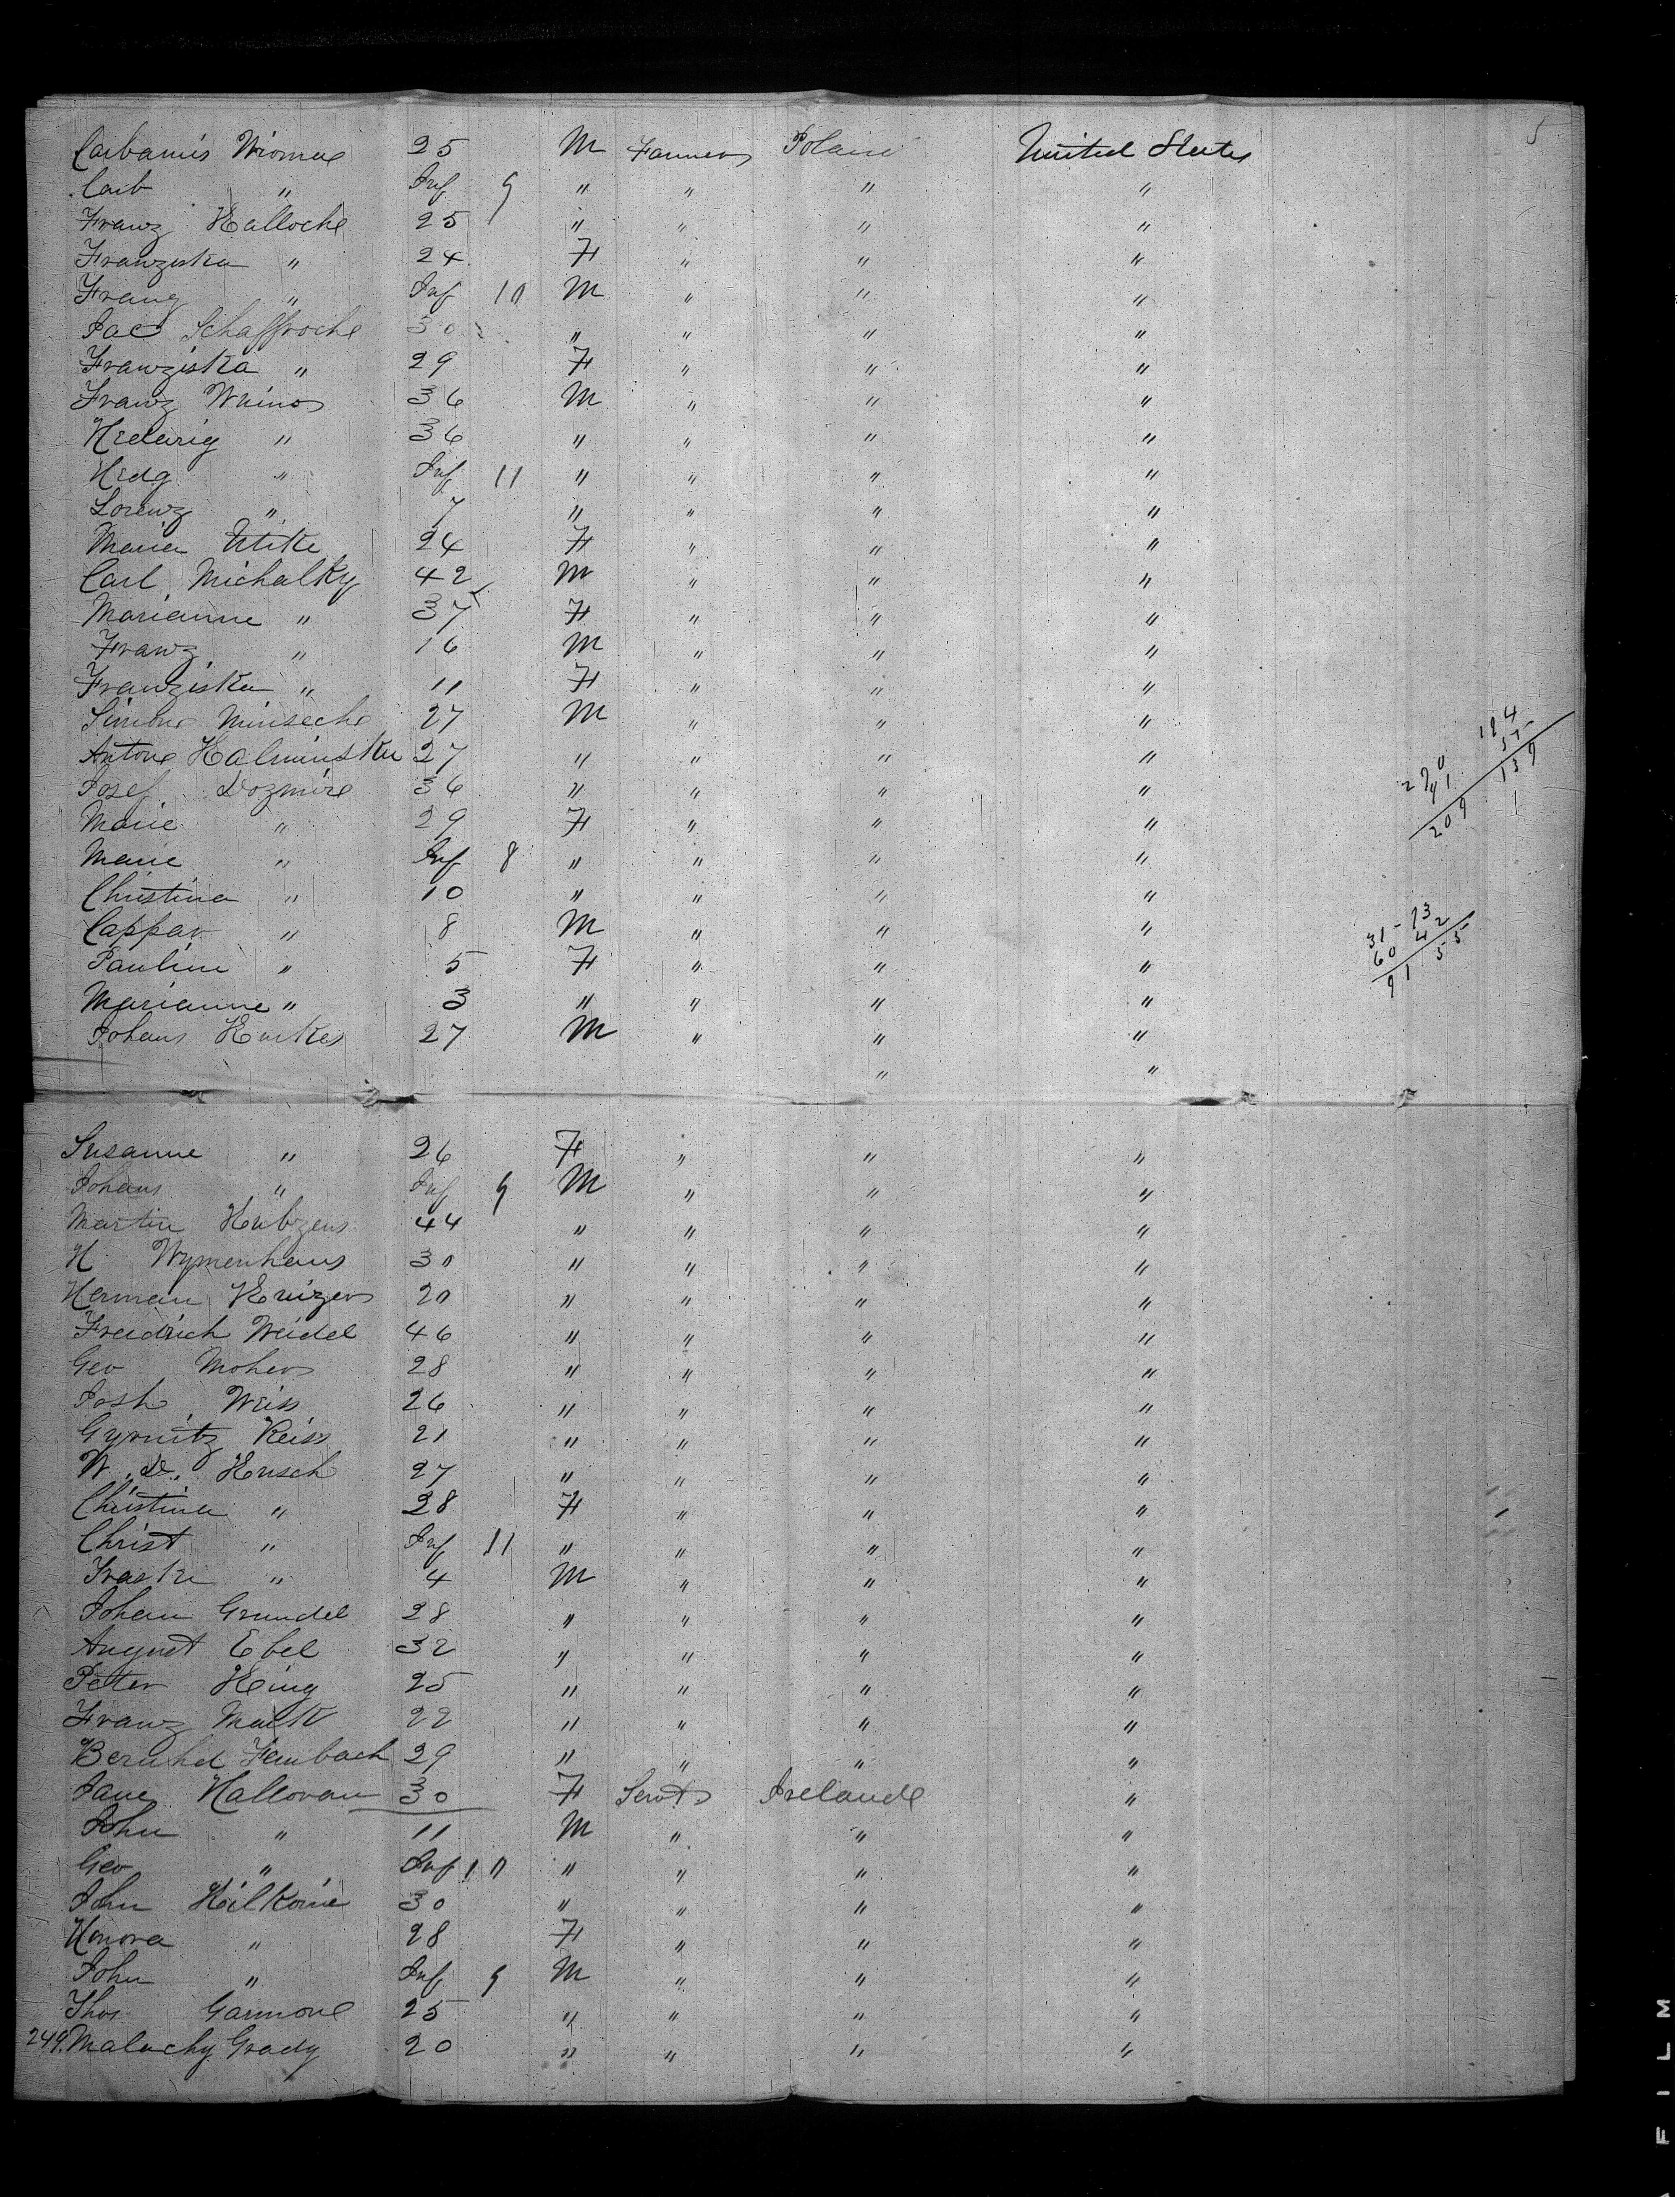 5
Carbamis Wiomue 25 M Farmers Poland United States
Carb " Inf 9 " " " "
Franz Kallocke 25 " " " "
Franziska " 24 F " " "
Franz " Inf 10 M " " "
Jac Schaffrocke 30 " " " "
Franziska " 29 F " " "
Franz Wninos 36 M " " "
Hedwig " 36 " " " "
Hedg " Inf 11 " " " "
Lorenz " 7 " " " "
Maria Utike 24 F " " "
Carl Michalky 42 M " " "
Marianne " 37 F " " "
Franz " 16 M " " "
Franziska " 11 F " " "
Simone Minsecke 27 M " " "
Antone Kalminsku 27 " " " "
Josef Dozmire 36 " " " "
Marie " 29 F " " "
Marie " Inf 8 " " " "
Christina " 10 " " " "
Cappar " 8 M " " "
Pauline " 5 F " " "
Marianne " 3 " " " "
Johans Kurkes 27 M " " "
" "
Susanne " 26 F " " "
Johans " Inf 9 M " " "
Martin Hubzens 44 " " " "
H Wymenhans 30 " " " "
Herman Kruizers 20 " " " "
Freidrich Weidel 46 " " " "
Geo Mohers 28 " " " "
Josh Weiss 26 " " " "
Gyrnitz Reiss 21 " " " "
W. D. Hensch 27 " " " "
Christina " 28 F " " "
Christ " Inf 11 " " " "
Fraske " 4 M " " "
Johan Grundel 28 " " " "
August Ebel 32 " " " "
Peter King 25 " " " "
Franz Malk 22 " " " "
Bernhd Fembach 29 " " " "
Jane Halloran 30 F Servts Irelande "
John " 11 M " " "
Geo " Inf 10 " " " "
John Kilkome 30 " " " "
Honora " 28 F " " "
John " Inf 9 M " " "
Thos Garmone 25 " " " "
249. Malachy Grady 20 " " " "
194
55
139
290
91
209
31 - 13
60 42
91 55
FILM